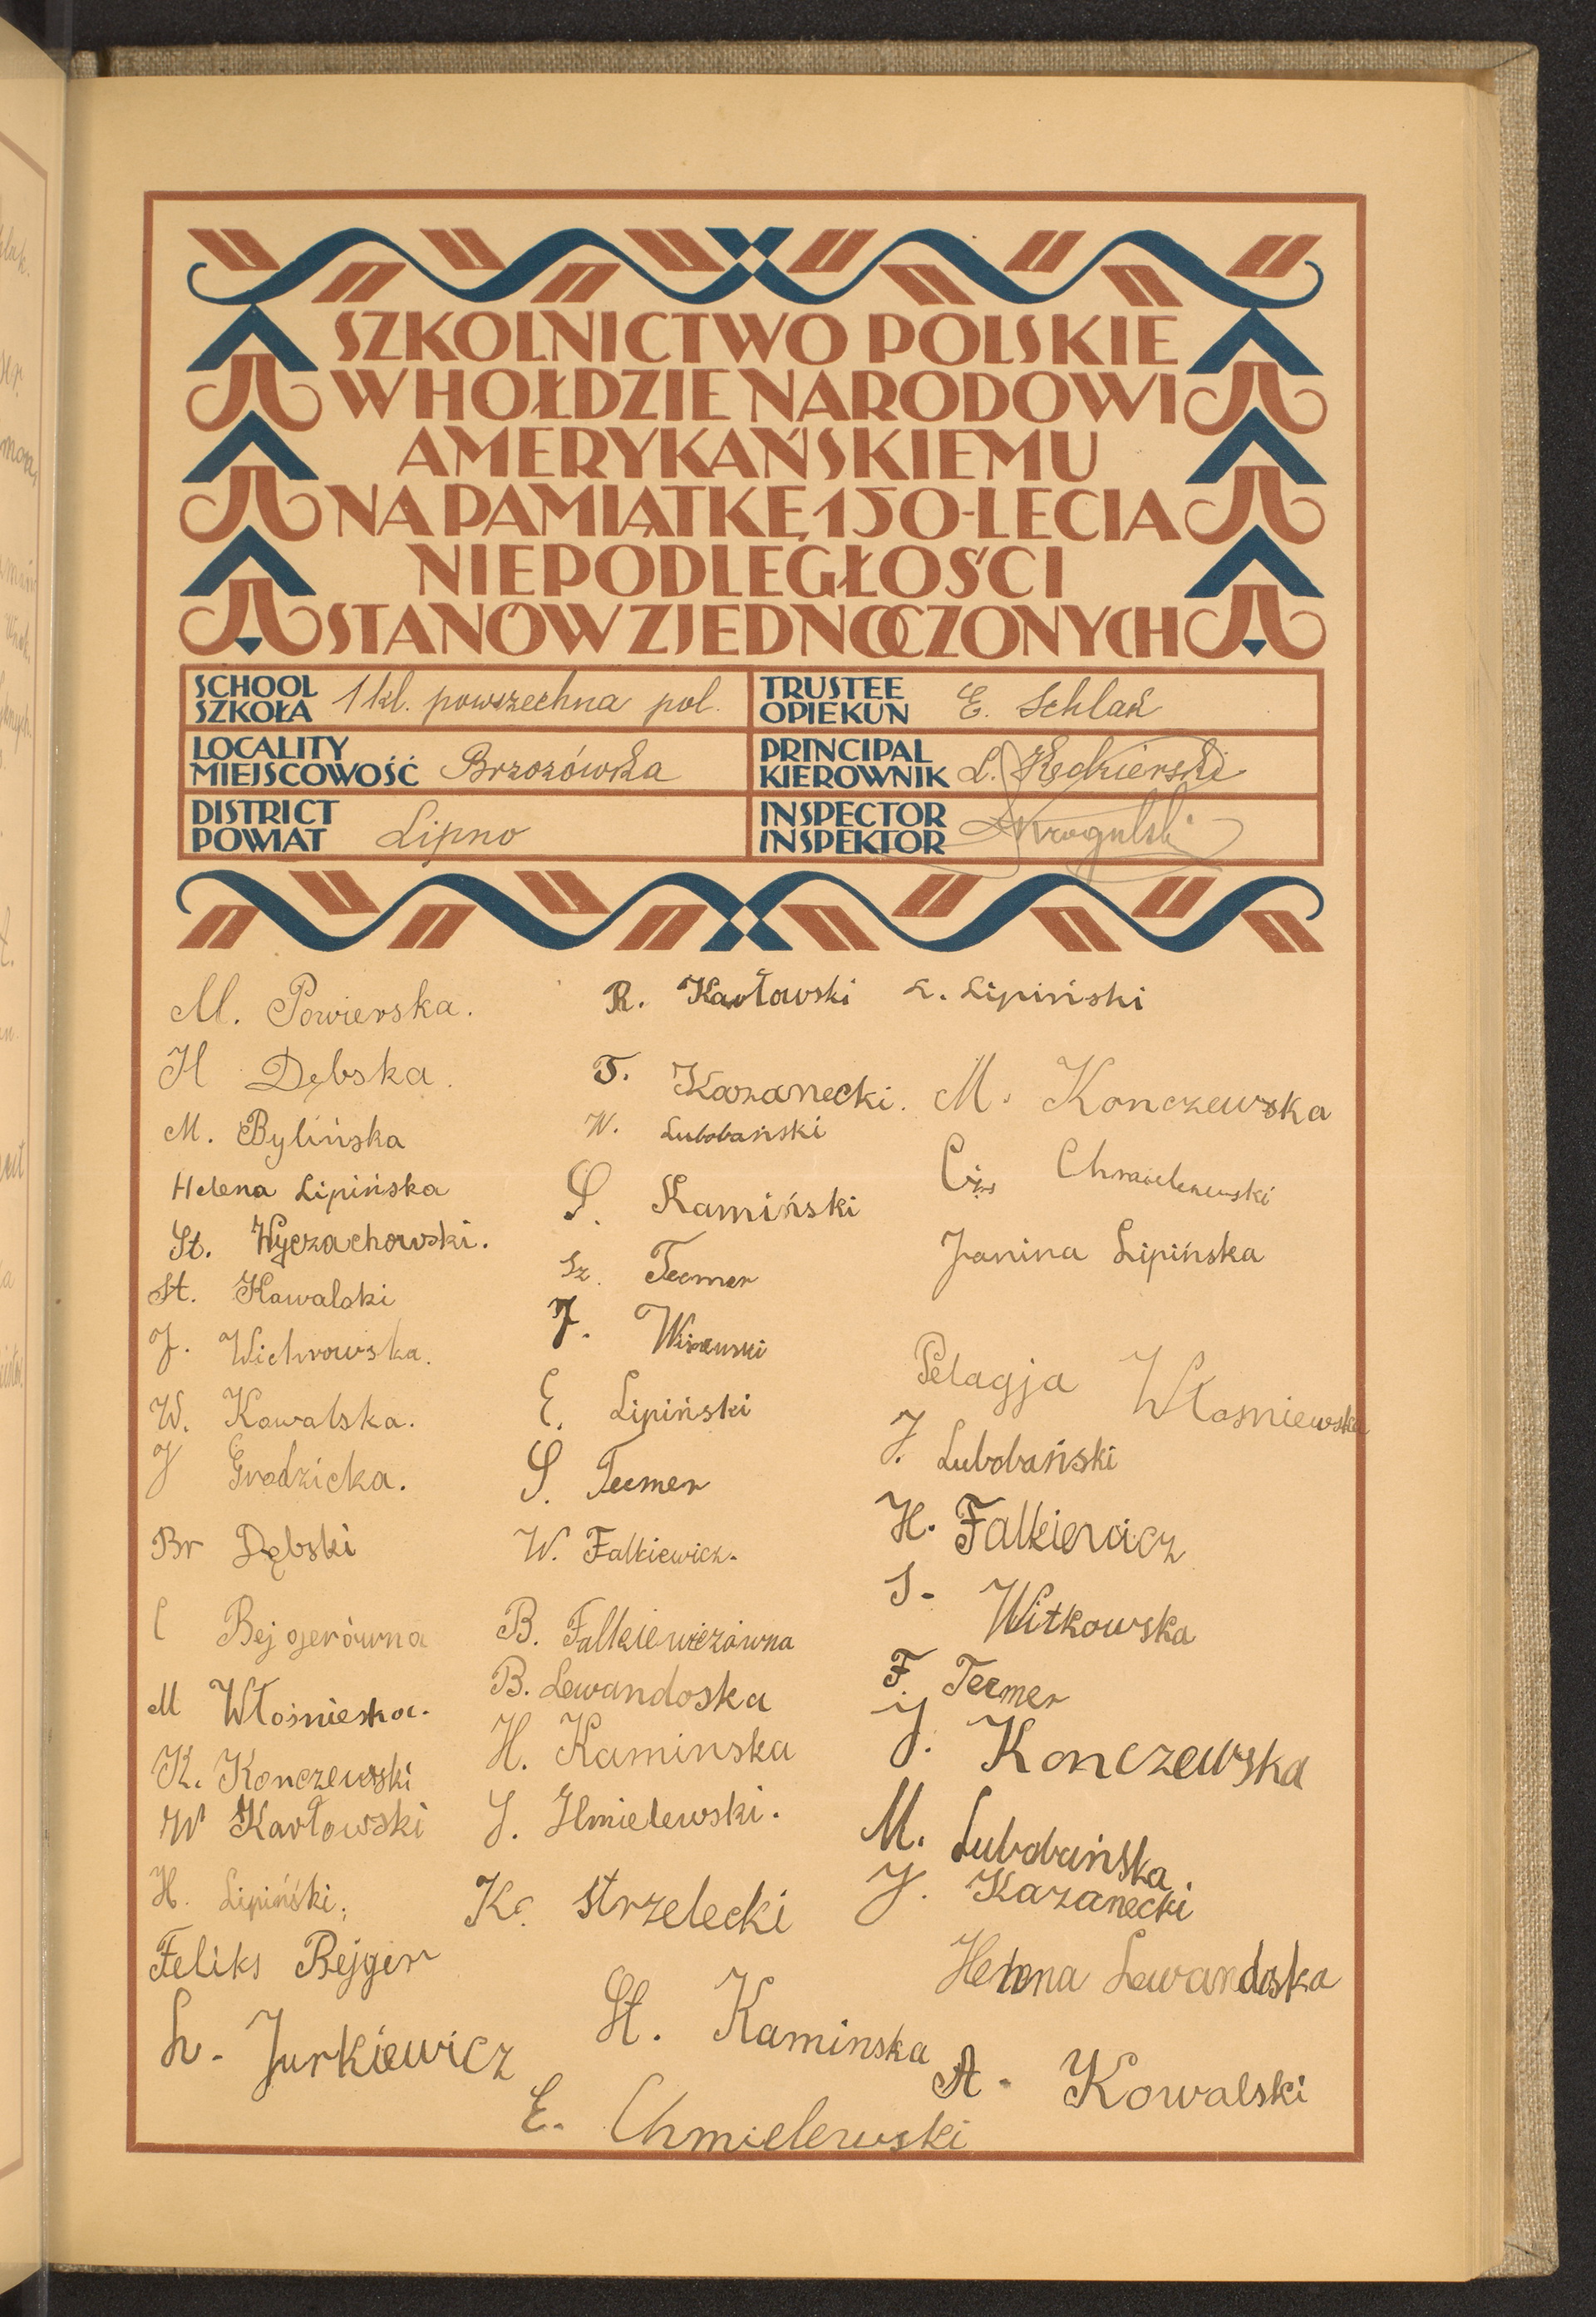 SZKOLNICTWO POLSKIE
W HOŁDZIE NARODOWI
AMERYKAŃSKIEMU
NA PAMIĄTKĘ 150-LECIA
NIEPODLEGŁOŚCI
STANÓW ZJEDNOCZONYCH
SCHOOL
SZKOŁA 1 kl. powszechna pol.
TRUSTEE
OPIEKUN E. Schlak
LOCALITY
MIEJSCOWOŚĆ Brzozówka
PRINCIPAL
KIEROWNIK L. Kędzierski
DISTRICT
POWIAT Lipno
INSPECTOR
INSPEKTOR
M. Powierska.
H Dębska.
M. Bylińska
Helena Lipińska
St. Wyczachowski.
St. Kawalski
J. Wichrowska.
W. Kawalska.
J Grodzicka.
Br Dębski
Bejgerówna
M Włośnieska.
K. Konczewski
W Karłowski
H. Lipiński.
Feliks Rejgier
L. Jurkiewicz
R. Karłowski
T. Kazanecki.
W. Lubobański
S. Kamiński
Sz. Termer
J.
E. Lipiński
S. Termer
W. Falkiewicz.
B. Falkiewiczówna
B. Lewandoska
H. Kaminska
J. Hmielewski.
Strzelecki
St. Kaminska
E. Chmielewski
L. Lipiński
M. Konczewska
Chmielewski
Janina Lipińska
Pelagja Włosniewska
J. Lubobański
H. Falkiewicz
S. Witkowska
F. Termer
J. Konczewska
M. Lubobańska
J. Kazanecki
Helena Lewandoska
A. Kowalski